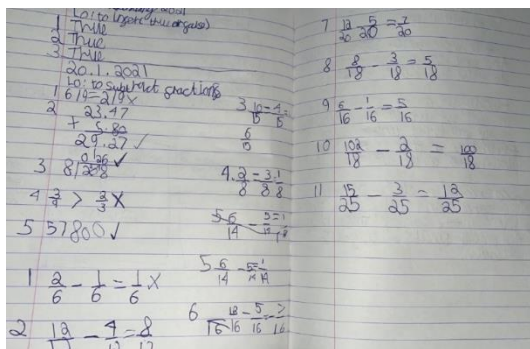 1 True
2 True
3 True
20.1.2021
Lo: to subtract fractions
1 6/9 = 2/9 x
2 23.47
+ 5.80
29.27 ✓
0126 ✓
3 8/
4 3/4 > 2/3 X
5 57800 ✓
1 2/6 - 1/6 = 1/6 X
2 12/ - 4/ = 8/
3 10/15 - 4/15 =
6/15
4. 2/8 = 3/8 1/8
5 6/14 - 5/14 = 1/14
5 6/14 - 5/14 = 1/14
6 12/16 - 5/16 = 7/16
7 12/20 5/20 = 7/20
8 8/18 - 3/18 = 5/18
9 6/16 - 1/16 = 5/16
10 102/18 - 2/18 = 100/18
11 15/25 - 3/25 = 12/25